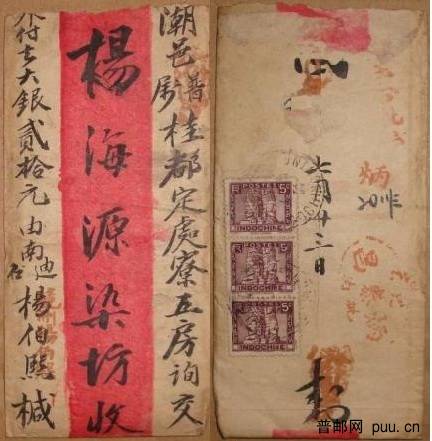 潮邑普屬桂都定處寮五房詢交
楊海源染坊收
外付去大銀貳拾元由南迪石楊伯熙椷
炳
七月廿三日
POSTES
5c
INDOCHINE
POSTES
5c
INDOCHINE
POSTES
5c
INDOCHINE
普邮网 puu.cn